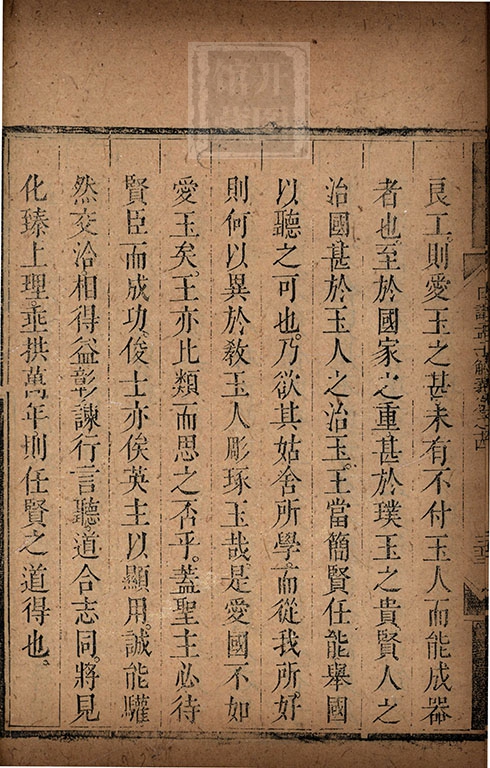 良工則愛玉之甚未有不付玉人而能成器
者也至於國家之重甚於璞玉之貴賢人之
治國甚於玉人之治玉王當簡賢任能舉國
以聽之可也乃欲其姑舍所學而從我所好
則何以異於敎玉人彫琢玉哉是愛國不如
愛玉矣王亦比類而思之否乎蓋聖主必待
賢臣而成功俊士亦俟英主以顯用誠能驩
然交洽相得益彰諫行言聽道合志同將見
化臻上理垂拱萬年則任賢之道得也